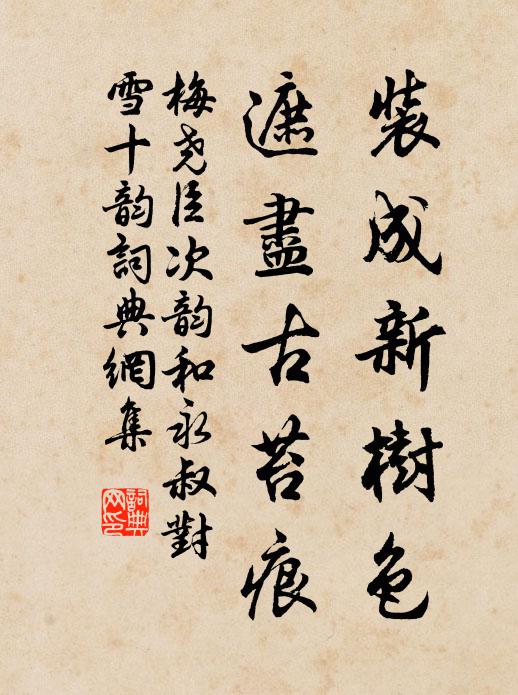 裝成新樹色
遮盡古苔痕
梅堯臣次韵和永叔對
雪十韵詞典網集
詞典网印